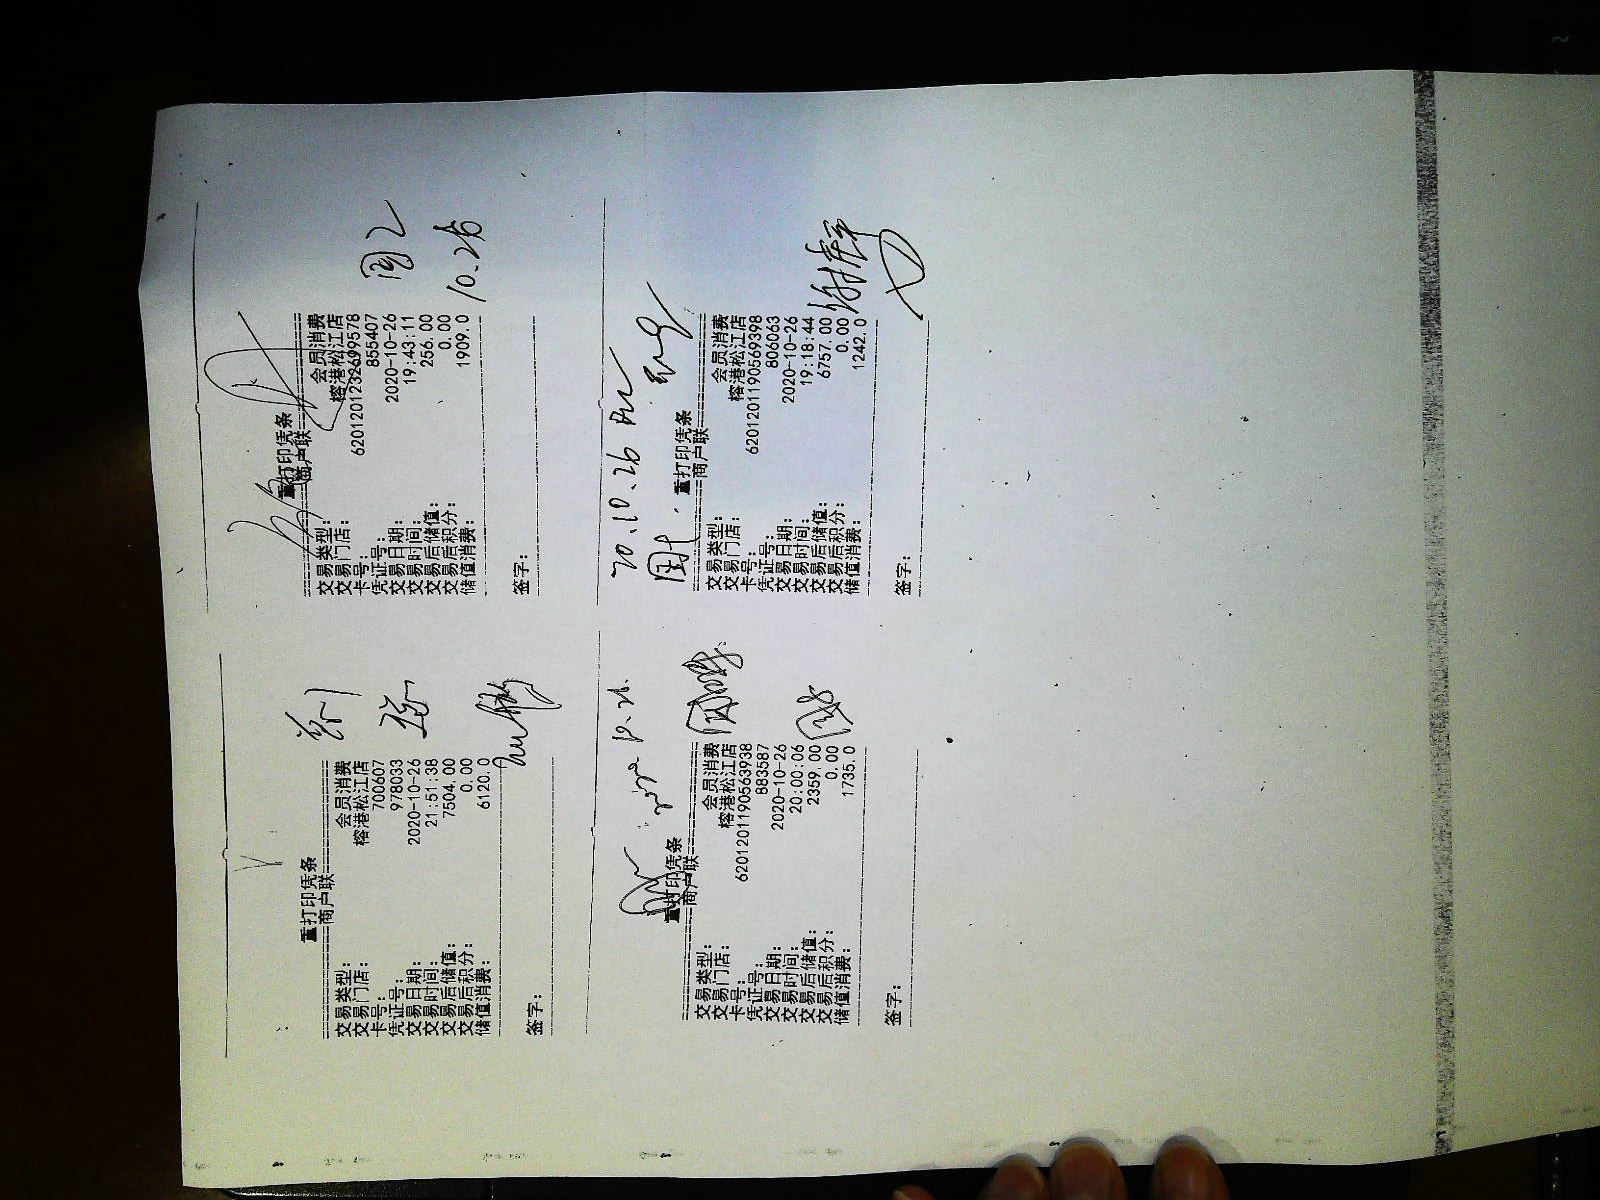 重打印凭条
商户联
交易类型: 会员消费
交易门店: 榕港松江店
卡号: 700607
凭证号: 978033
交易日期: 2020-10-26
交易时间: 21:51:38
交易后储值: 7504.00
交易后积分: 0.00
储值消费: 6120.0
签字:
重打印凭条
商户联
交易类型: 会员消费
交易门店: 榕港松江店
卡号: 6201201232699578
凭证号: 855407
交易日期: 2020-10-26
交易时间: 19:43:11
交易后储值: 256.00
交易后积分: 0.00
储值消费: 1909.0
10.26
签字:
重打印凭条
商户联
交易类型: 会员消费
交易门店: 榕港松江店
卡号: 6201201190563938
凭证号: 883587
交易日期: 2020-10-26
交易时间: 20:00:06
交易后储值: 2359.00
交易后积分: 0.00
储值消费: 1735.0
签字:
20.10.26
重打印凭条
商户联
交易类型: 会员消费
交易门店: 榕港松江店
卡号: 6201201190569398
凭证号: 806063
交易日期: 2020-10-26
交易时间: 19:18:44
交易后储值: 6757.00
交易后积分: 0.00
储值消费: 1242.0
签字: